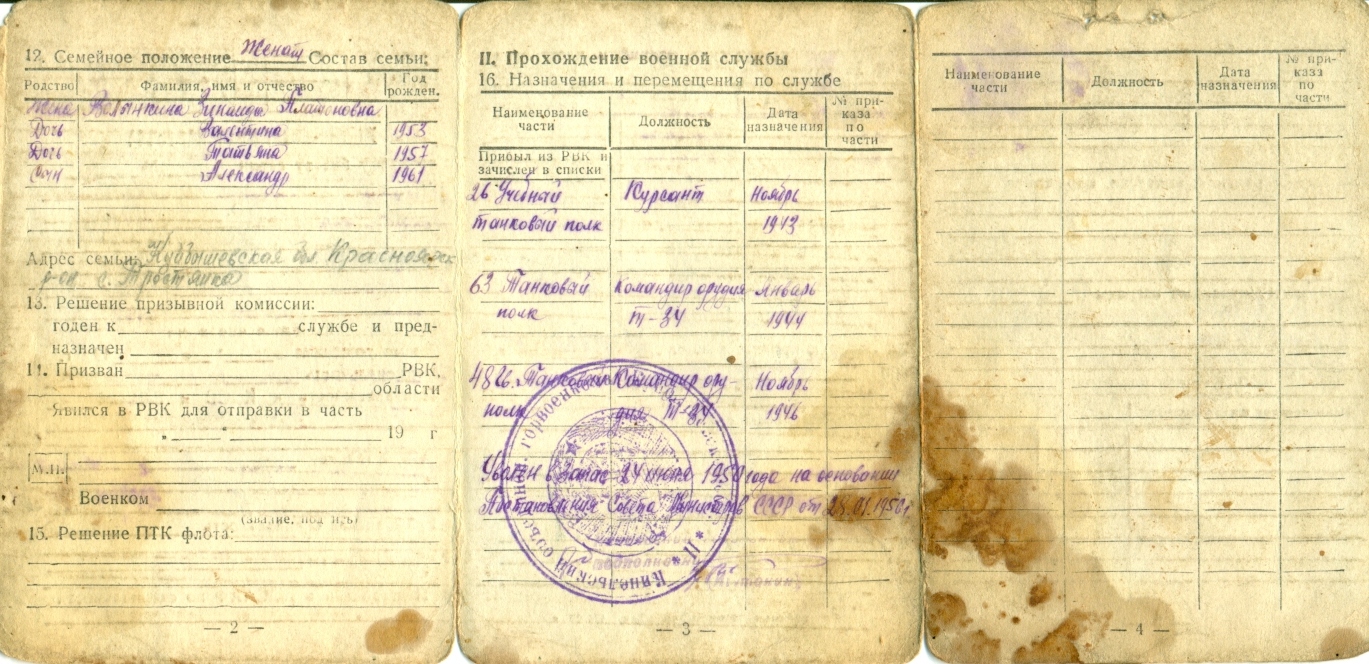 12. Семейное положение Женат Состав семьи:
Родство Фамилия, имя и отчество Год рожден.
Жена Зинаида Платоновна
Дочь Валентина 1953
Дочь Татьяна 1957
Сын Александр 1961
Адрес семьи: Куйбышевская обл. Красноярск
р-он. с. Тростянка
13. Решение призывной комиссии:
годен к службе и пред-
назначен
14. Призван РВК,
области
Явился в РВК для отправки в часть
" " 19 г
М.П.
Военком
(звание, подпись)
15. Решение ПТК флота:
— 2 —
II. Прохождение военной службы
16. Назначения и перемещения по службе
Наименование части Должность Дата назначения № приказа по части
Прибыл из РВК и
зачислен в списки
26 Учебный Курсант Ноябрь
танковый полк 1943
63 Танковый Командир орудия Январь
полк Т-34 1944
Танковый Командир ору- Ноябрь
полк дия Т-34 1946
Уволен в запас 24 1950 года на основании
Постановления Совета Министров СССР от 1950г
Кинельский горвоенко
— 3 —
Наименование части Должность Дата назначения № приказа по части
— 4 —